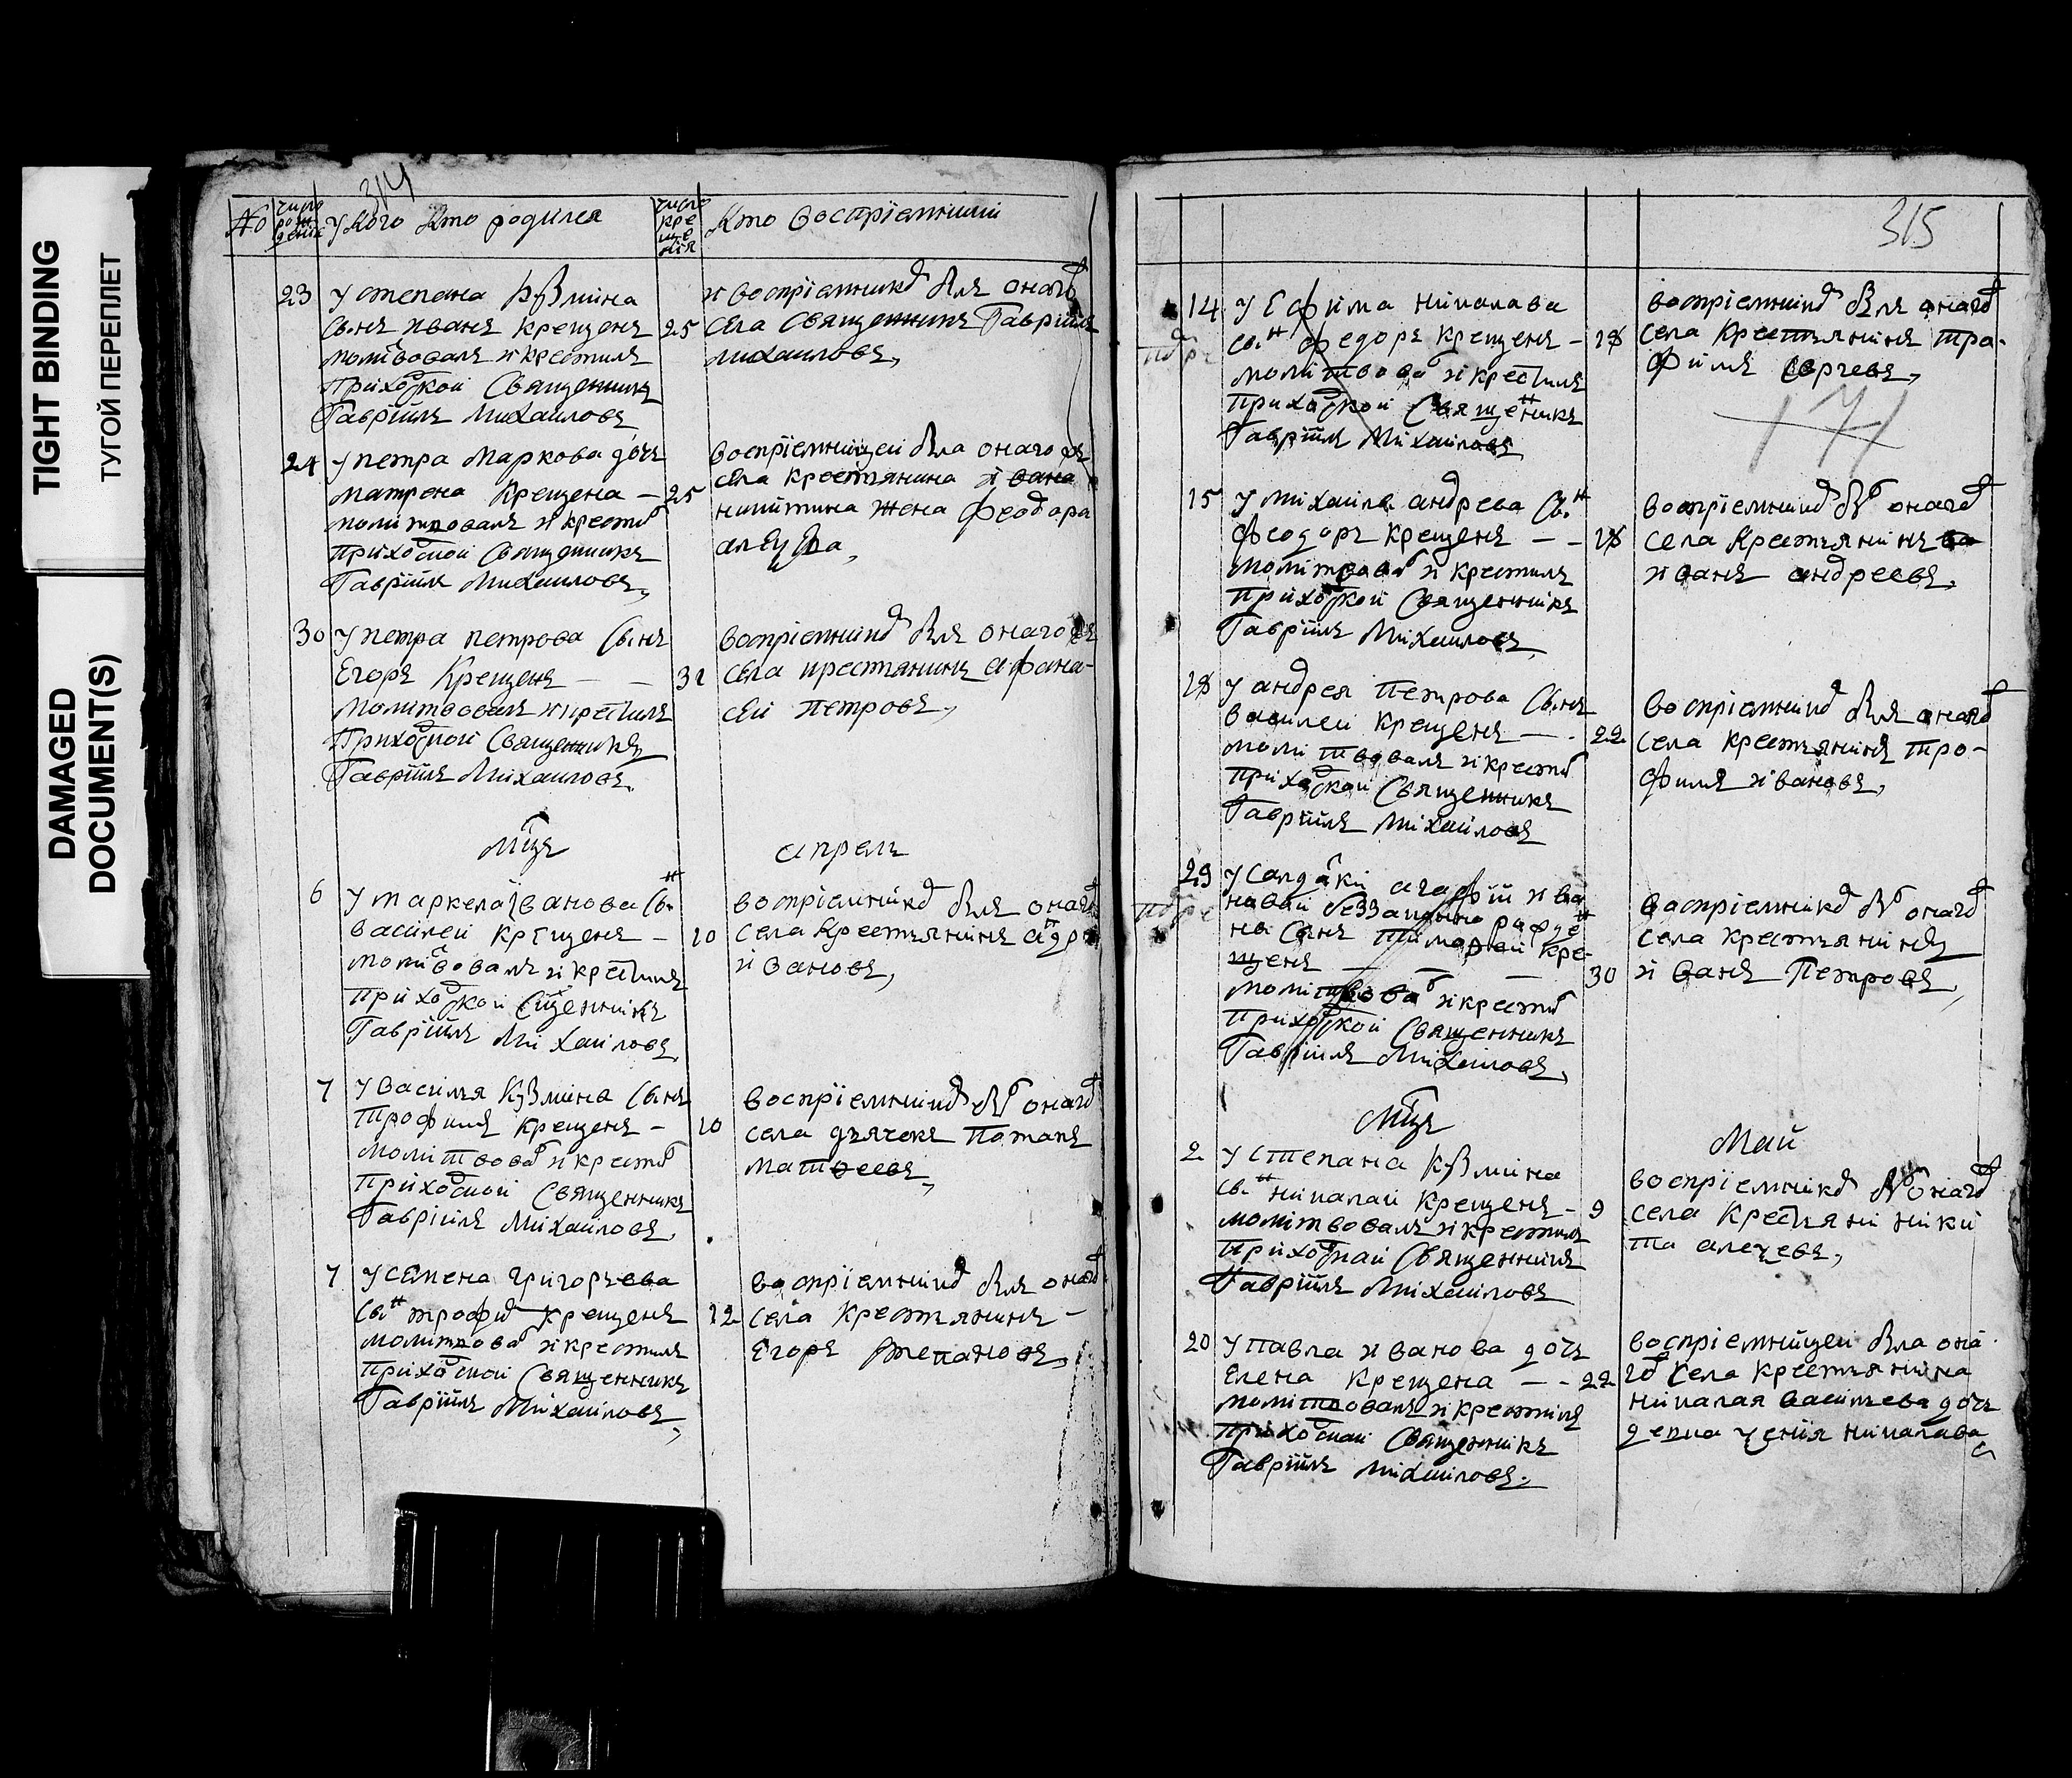 TIGHT BINDING
ТУГОЙ ПЕРЕПЛЕТ
DAMAGED
DOCUMENT(S)
314
№ число рождения У кого кто родился число крещения Кто восприемники
23 У степана кузмина
сынъ иванъ крещенъ 25
молитвовалъ и крестилъ
приходской священникъ
Гавріилъ Михаиловъ
и воспріемникомъ былъ онаго
села священникъ Гавріилъ
михаиловъ,
24 У петра маркова дочь
матрена крещена — 25
молитвовалъ и крестил
приходской священникъ
Гавріилъ Михаиловъ,
воспріемницей была онаго же
села крестьянина ивана
никитина жена феодора
30 У петра петрова сынъ
Егоръ крещенъ — — 31
молитвовалъ и крестилъ
приходской священникъ
Гавріилъ Михаиловъ.
воспріемникомъ былъ онаго же
села крестянинъ афана-
сей петровъ,
Мцъ апрель
6 У маркела иванова сын
василей крещенъ — 10
молитвовалъ и крестилъ
приходской сщенникъ
Гавріилъ Михаиловъ
воспріемником былъ онаго
села крестьянинъ андр
ивановъ,
7 У василья кузмина сынъ
трофимъ крещенъ — 10
молитвовал и крестил
приходской священникъ
Гавріилъ Михаиловъ
воспріемником был онаго
села дьячекъ потапъ
матвеевъ,
7 У семена григорьева
сын трофим крещенъ 12
молитвовал и крестилъ
приходской священникъ
Гавріилъ Михаиловъ,
воспріемником былъ онаго
села крестьянинъ —
Егоръ степановъ,
315
14 У Ефима николава
сын федоръ крещенъ — 18
молитвовал и крестилъ
приходской священникъ
Гавріилъ Михаиловъ
воспріемником былъ онаго
села крестьянинъ тра-
филъ сергевъ,
171
15 У михаила андрева сын
феодоръ крещенъ — — 18
молитвовал и крестилъ
приходской священникъ
Гавріилъ Михаиловъ,
воспріемником был онаго
села крестьянинъ
иванъ андреевъ,
18 У андрея петрова сынъ
василей крещенъ — 22
молитвовалъ и крестил
приходской священникъ
Гавріилъ Михаиловъ
воспріемником былъ онаго
села крестьянинъ тро-
филъ ивановъ,
29 У салдатки агафіи ива
навай беззаконно рожден
на сынъ тимофей кре-
щенъ — — — 30
молитвовал и крестил
приходской священникъ
Гавріилъ Михаиловъ,
воспріемником был онаго
села крестьянинъ
иванъ петровъ,
Мцъ Май
2 У степана кузмина
сын николай крещенъ — 9
молитвовалъ и крестилъ
приходнай священникъ
Гавріилъ Михаиловъ
воспріемником был онаго
села крестьяни ники
та
20 У павла иванова дочь
елена крещена — — 22
молитвовалъ и крестилъ
приходскай священникъ
Гавріилъ михаиловъ.
воспріемницей была она
го села крестьянина
николая васильева дочь
девка николава